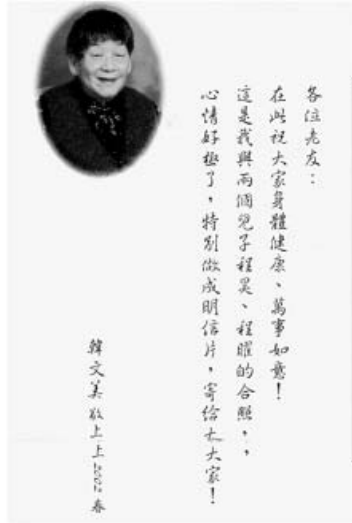 各位老友：
在此祝大家身體健康、萬事如意！
這是我與兩個兒子程昊、程曜的合照，，
心情好極了，特別做成明信片，寄給大大家！
韓文美敬上上 春